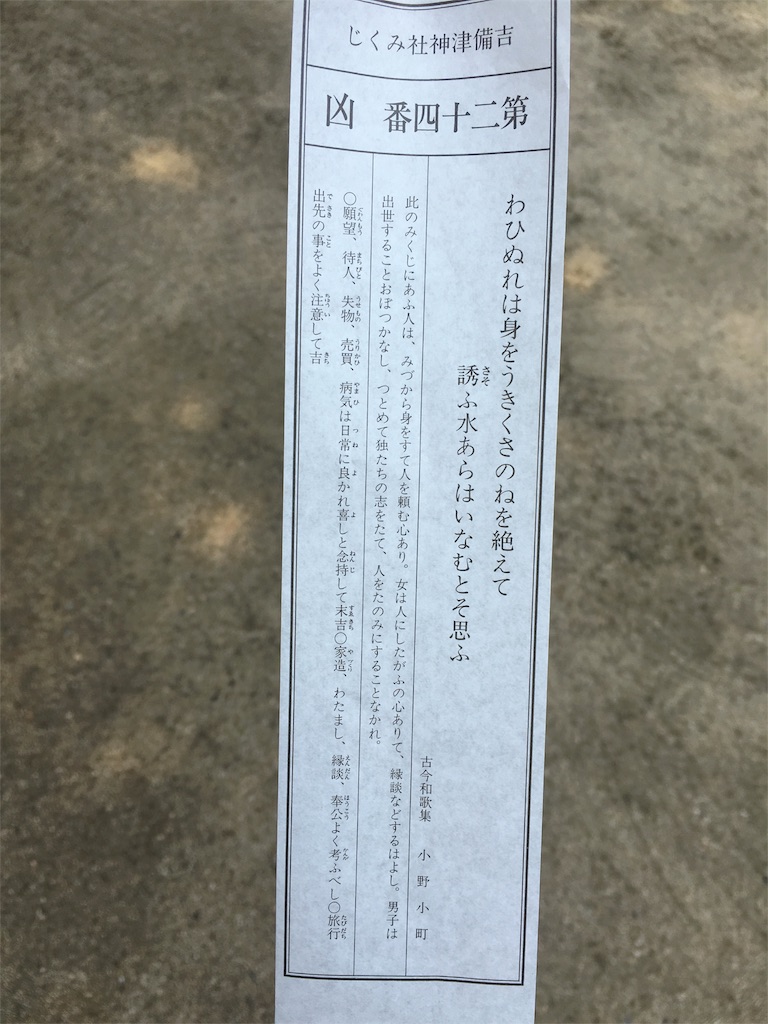 吉備津神社みくじ
第二十四番 凶
わひぬれは身をうきくさのねを絶えて
誘ふ水あらはいなむとそ思ふ
古今和歌集 小野小町
此のみくじにあふ人は、みづから身をすて人を頼む心あり。女は人にしたがふの心ありて、縁談などするはよし。男子は
出世することおぼつかなし、つとめて独たちの志をたて、人をたのみにすることなかれ。
〇願望、待人、失物、売買、病気は日常に良かれ喜しと念持して末吉〇家造、わたまし、縁談、奉公よく考ふべし〇旅行
出先の事をよく注意して吉